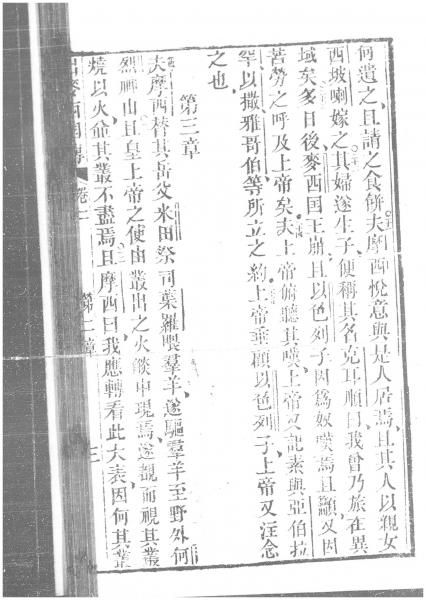 何遺之、且請之食餅、夫摩西悅意與是人居焉、且其人以親女
西坡喇嫁之、其婦遂生子、便稱其名克耳順、曰我曾乃旅在異
域矣、多日後、麥西国王崩、且以色列子因爲奴嘆焉且籲、又因
苦勞之呼及上帝矣、夫上帝俯聽其嘆、上帝又記素與亞伯拉
罕、以撒、雅哥伯等所立之約、上帝垂顧以色列子、上帝又注念
之也、
第三章
夫摩西替其岳父米田祭司葉羅喂羣羊、遂驅羣羊至野外何
山且皇上帝之使由叢出之火燄中現焉、遂覩而視其叢
燒以火、其叢不盡焉且摩西曰我應轉看此大表、因何其叢
出麥西国傳 卷二 第二章 三